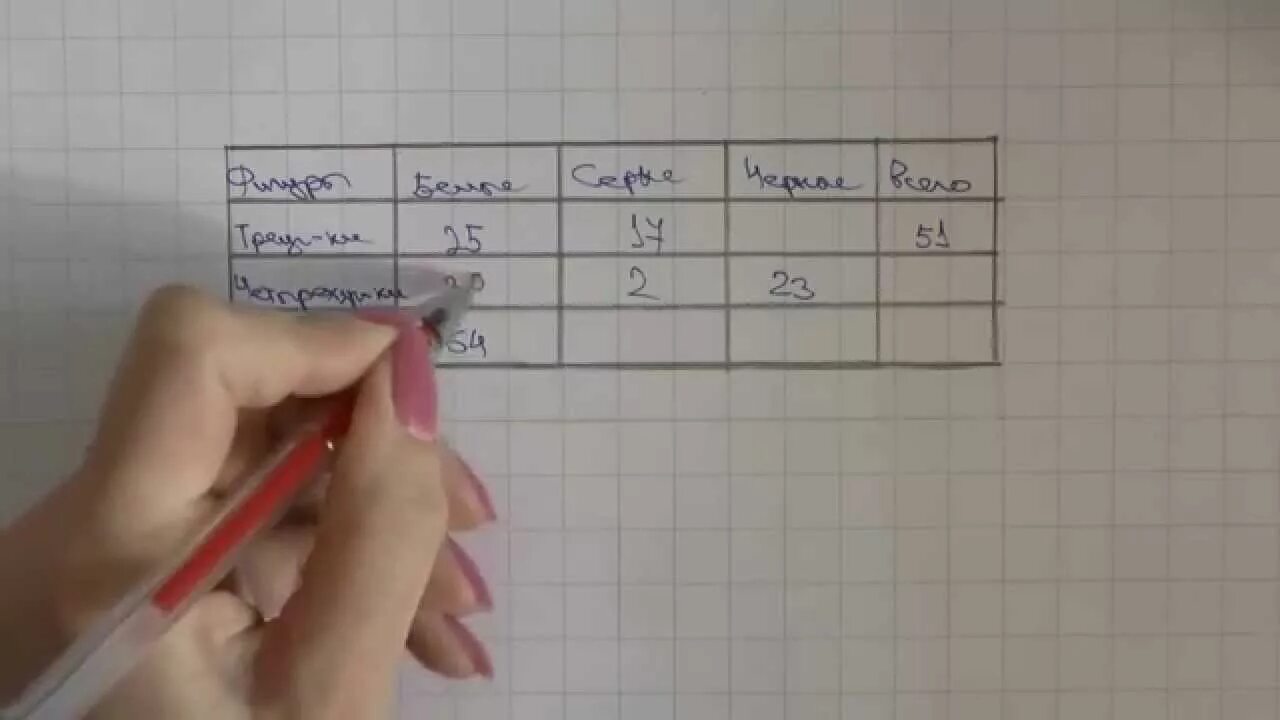 Фигуры Белые Серые Черные Всего
Треуг-ки 25 17 51
Четырехуг-ки 2 23
54